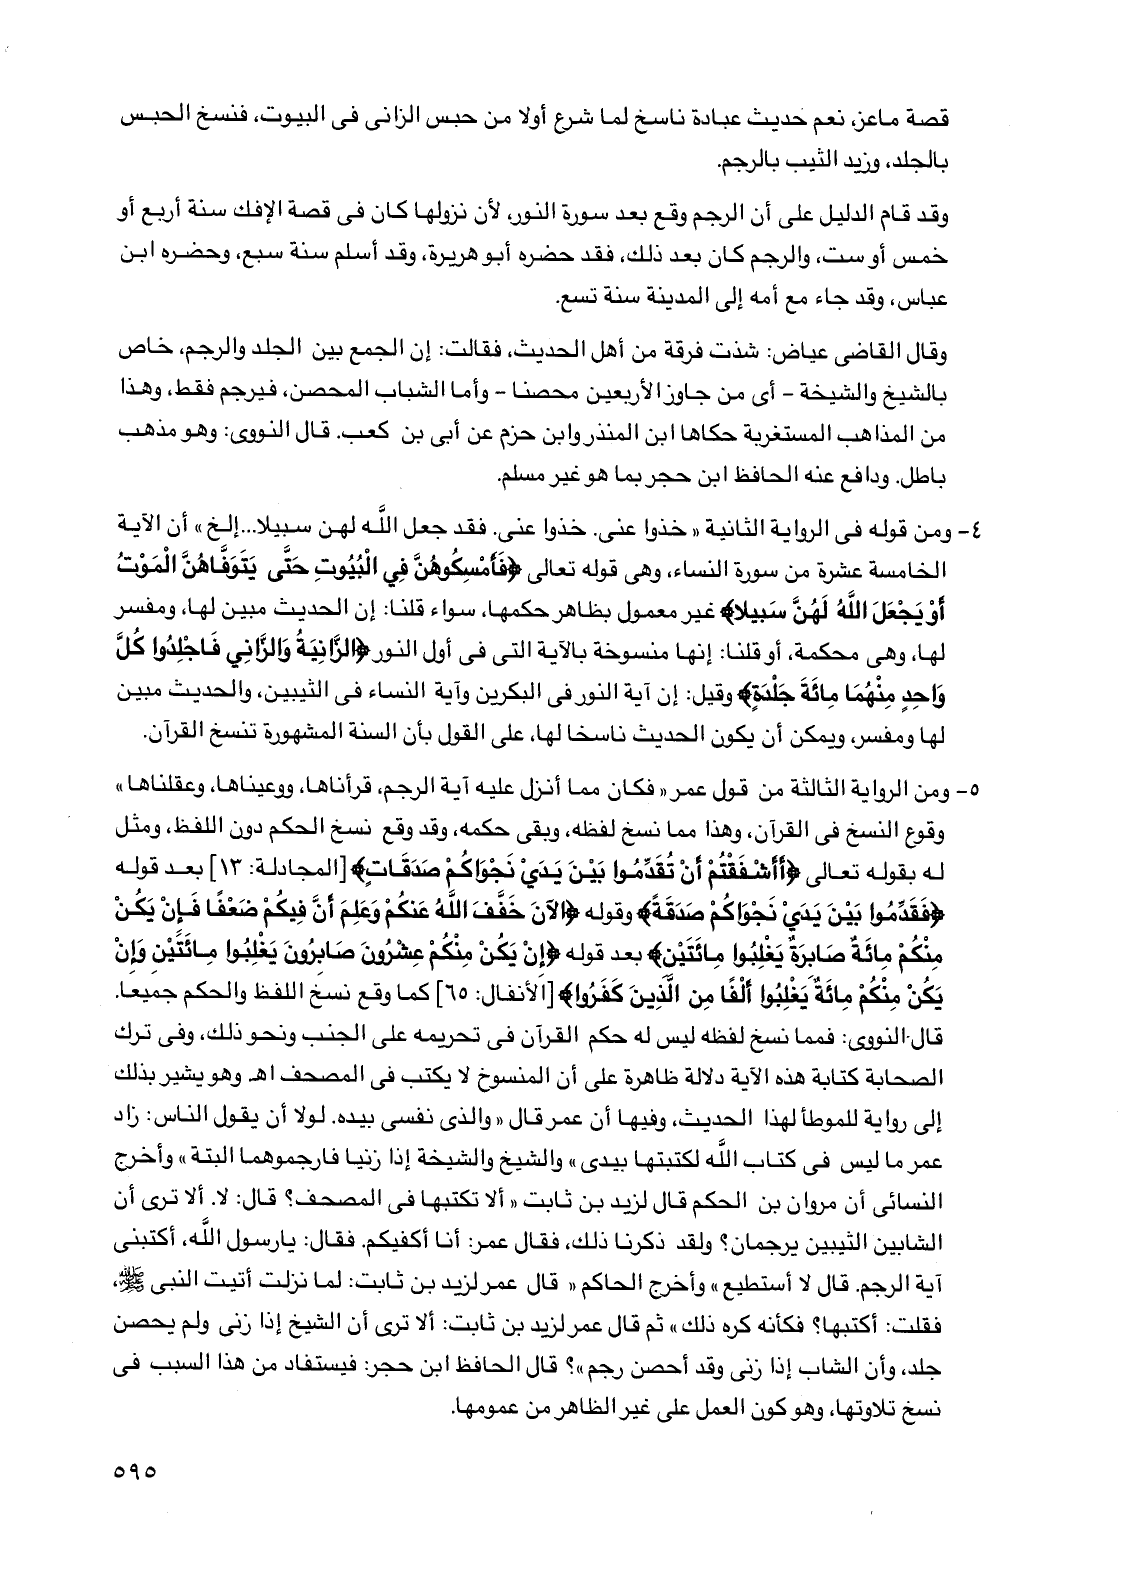 قصة ماعز، نعم حديث عبادة ناسخ لما شرع أولا من حبس الزانى فى البيوت، فنسخ الحبس
بالجلد، وزيد الثيب بالرجم.
وقد قام الدليل على أن الرجم وقع بعد سورة النور، لأن نزولها كان فى قصة الإفك سنة أربع أو
خمس أو ست، والرجم كان بعد ذلك، فقد حضره أبو هريرة، وقد أسلم سنة سبع، وحضره ابن
عباس، وقد جاء مع أمه إلى المدينة سنة تسع.
وقال القاضى عياض: شذت فرقة من أهل الحديث، فقالت: إن الجمع بين الجلد والرجم، خاص
بالشيخ والشيخة – أى من جاوز الأربعين محصنا – وأما الشباب المحصن، فيرجم فقط، وهذا
من المذاهب المستغربة حكاها ابن المنذر وابن حزم عن أبى بن كعب. قال النووى: وهو مذهب
باطل. ودافع عنه الحافظ ابن حجر بما هو غير مسلم.
٤- ومن قوله فى الرواية الثانية « خذوا عنى. خذوا عنى. فقد جعل اللَّه لهن سبيلا...إلخ » أن الآية
الخامسة عشرة من سورة النساء، وهى قوله تعالى ﴿فَأَمْسِكُوهُنَّ فِي الْبُيُوتِ حَتَّى يَتَوَفَّاهُنَّ الْمَوْتُ
أَوْ يَجْعَلَ اللَّهُ لَهُنَّ سَبِيلا﴾ غير معمول بظاهر حكمها، سواء قلنا: إن الحديث مبين لها، ومفسر
لها، وهى محكمة، أو قلنا: إنها منسوخة بالآية التى فى أول النور ﴿الزَّانِيَةُ وَالزَّانِي فَاجْلِدُوا كُلَّ
وَاحِدٍ مِنْهُمَا مِائَةَ جَلْدَةٍ﴾ وقيل: إن آية النور فى البكرين وآية النساء فى الثيبين، والحديث مبين
لها ومفسر، ويمكن أن يكون الحديث ناسخا لها، على القول بأن السنة المشهورة تنسخ القرآن.
٥- ومن الرواية الثالثة من قول عمر « فكان مما أنزل عليه آية الرجم، قرأناها، ووعيناها، وعقلناها »
وقوع النسخ فى القرآن، وهذا مما نسخ لفظه، وبقى حكمه، وقد وقع نسخ الحكم دون اللفظ، ومثل
له بقوله تعالى ﴿أَأَشْفَقْتُمْ أَنْ تُقَدِّمُوا بَيْنَ يَدَيْ نَجْوَاكُمْ صَدَقَاتٍ﴾ [المجادلة: ١٣] بعد قوله
﴿فَقَدِّمُوا بَيْنَ يَدَيْ نَجْوَاكُمْ صَدَقَةً﴾ وقوله ﴿الآنَ خَفَّفَ اللَّهُ عَنكُمْ وَعَلِمَ أَنَّ فِيكُمْ ضَعْفًا فَإِنْ يَكُنْ
مِنْكُمْ مِائَةٌ صَابِرَةٌ يَغْلِبُوا مِائَتَيْنِ﴾ بعد قوله ﴿إِنْ يَكُنْ مِنْكُمْ عِشْرُونَ صَابِرُونَ يَغْلِبُوا مِائَتَيْنِ وَإِنْ
يَكُنْ مِنْكُمْ مِائَةٌ يَغْلِبُوا أَلْفًا مِن الَّذِينَ كَفَرُوا﴾ [الأنفال: ٦٥] كما وقع نسخ اللفظ والحكم جميعا.
قال النووى: فمما نسخ لفظه ليس له حكم القرآن فى تحريمه على الجنب ونحو ذلك، وفى ترك
الصحابة كتابة هذه الآية دلالة ظاهرة على أن المنسوخ لا يكتب فى المصحف اهـ وهو يشير بذلك
إلى رواية للموطأ لهذا الحديث، وفيها أن عمر قال « والذى نفسى بيده. لولا أن يقول الناس: زاد
عمر ما ليس فى كتاب اللَّه لكتبتها بيدى » والشيخ والشيخة إذا زنيا فارجموهما البتة » وأخرج
النسائى أن مروان بن الحكم قال لزيد بن ثابت « ألا تكتبها فى المصحف؟ قال: لا. ألا ترى أن
الشابين الثيبين يرجمان؟ ولقد ذكرنا ذلك، فقال عمر: أنا أكفيكم. فقال: يارسول اللَّه، أكتبنى
آية الرجم. قال لا أستطيع » وأخرج الحاكم « قال عمر لزيد بن ثابت: لما نزلت أتيت النبى ﷺ،
فقلت: أكتبها؟ فكأنه كره ذلك » ثم قال عمر لزيد بن ثابت: ألا ترى أن الشيخ إذا زنى ولم يحصن
جلد، وأن الشاب إذا زنى وقد أحصن رجم »؟ قال الحافظ ابن حجر: فيستفاد من هذا السبب فى
نسخ تلاوتها، وهو كون العمل على غير الظاهر من عمومها.
٥٩٥